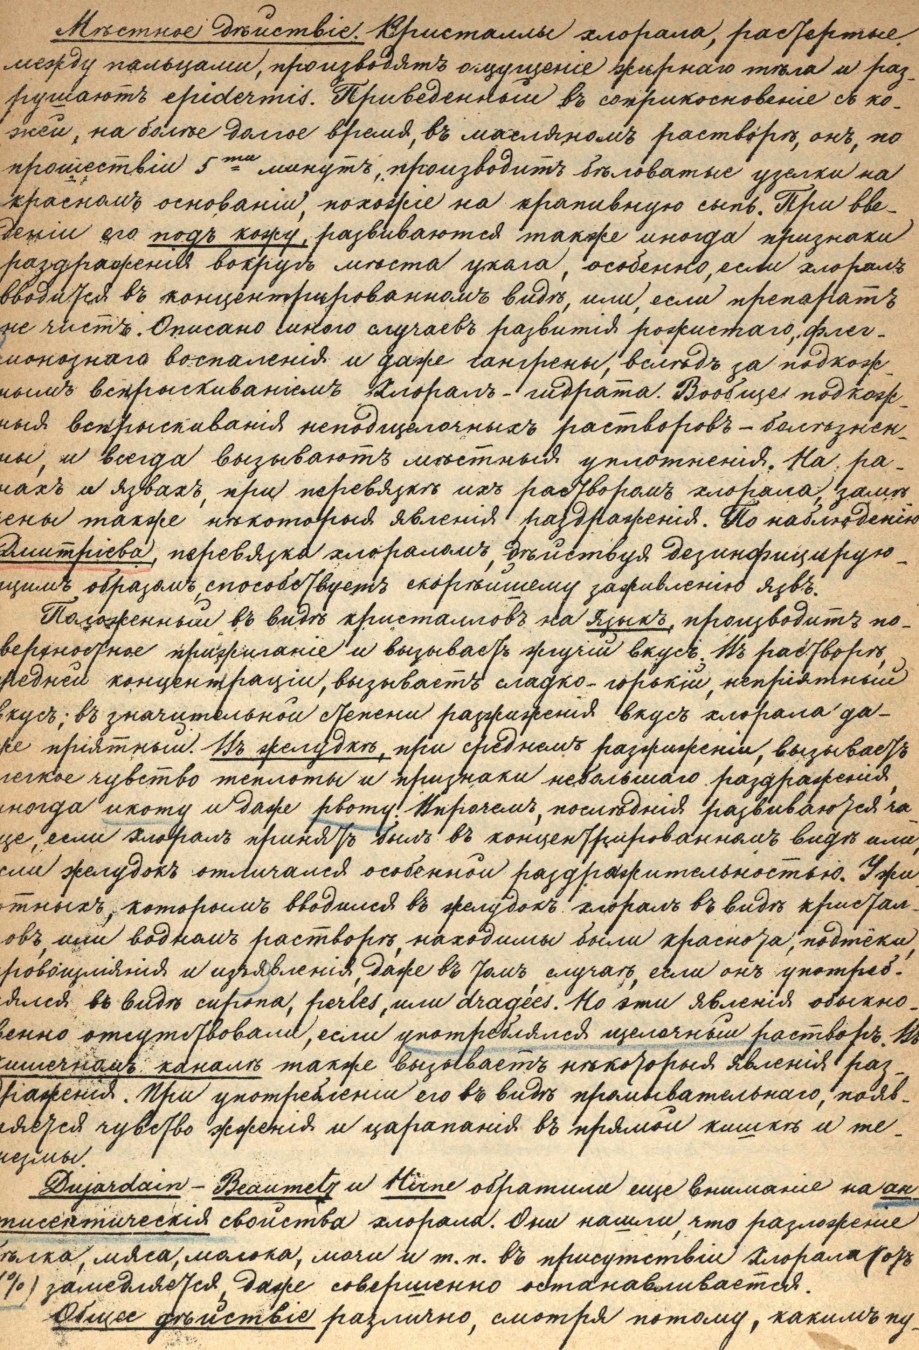 Мѣстное дѣйствіе. Кристаллы хлорала, растертые
между пальцами, производятъ ощущеніе жирнаго тѣла и раз-
рушаютъ epidermis. Приведенный въ соприкосновеніе съ ко-
жей, на болѣе долгое время, въ масляномъ растворѣ, онъ, по
прошествіи 5ти минутъ, производитъ бѣловатые узелки на
красномъ основаніи, похожіе на крапивную сыпь. При вве-
деніи его подъ кожу, развиваются также иногда признаки
раздраженія вокругъ мѣста укола, особенно, если хлоралъ
вводится въ концентрированномъ видѣ, или, если препаратъ
не чистъ. Описано много случаевъ развитія рожистаго, флег-
монознаго воспаленія и даже гангрены, вслѣдъ за подкож-
нымъ впрыскиваніемъ хлоралъ-гидрата. Вообще подкож-
ныя впрыскиванія неподщелочныхъ растворовъ - болѣзнен-
ны, и всегда вызываютъ мѣстныя уплотненія. На ра-
нахъ и язвахъ, при перевязкѣ ихъ растворомъ хлорала, замѣ
чены также нѣкоторыя явленія раздраженія. По наблюденію
Дмитріева, перевязка хлораломъ, дѣйствуя дезинфицирую-
щимъ образомъ, способствуетъ скорѣйшему заживленію язвъ.
Положенный въ видѣ кристалловъ на языкъ, производитъ по-
верхностное прижиганіе и вызываетъ жгучій вкусъ. Въ растворѣ,
средней концентраціи, вызываетъ сладко-горькій, непріятный
вкусъ; въ значительной степени разжиженія вкусъ хлорала да-
же пріятный. Въ желудкѣ, при среднемъ разжиженіи, вызываетъ
легкое чувство теплоты и признаки небольшаго раздраженія,
иногда икоту и даже рвоту. Впрочемъ, послѣднія развиваются ча
ще, если хлоралъ принятъ былъ въ концентрированномъ видѣ или,
если желудокъ отличался особенной раздражительностью. У жи
отныхъ, которымъ вводился въ желудокъ хлоралъ въ видѣ кристал-
овъ, или водномъ растворѣ, находимы были краснота, подтёки,
кровоизліянія и изъявленія, даже въ томъ случаѣ, если онъ употреб-
лялся въ видѣ сиропа, perles, или dragées. Но эти явленія обыкно-
венно отсутствовали, если употреблялся щелочный растворъ. Въ
кишечномъ каналѣ также вызываетъ нѣкоторыя явленія раз-
драженія. При употребленіи его въ видѣ промывательнаго, появ-
ляется чувство жженія и царапанія въ прямой кишкѣ и те-
незмы.
Dujardain - Beaumetz и Hirne обратили еще вниманіе на ан-
тисептическія свойства хлорала. Они нашли, что разложеніе
бѣлка, мяса, молока, мочи и т.п. въ присутствіи хлорала (отъ
1%) замедляется, даже совершенно останавливается.
Общее дѣйствіе различно, смотря потому, какимъ пу-